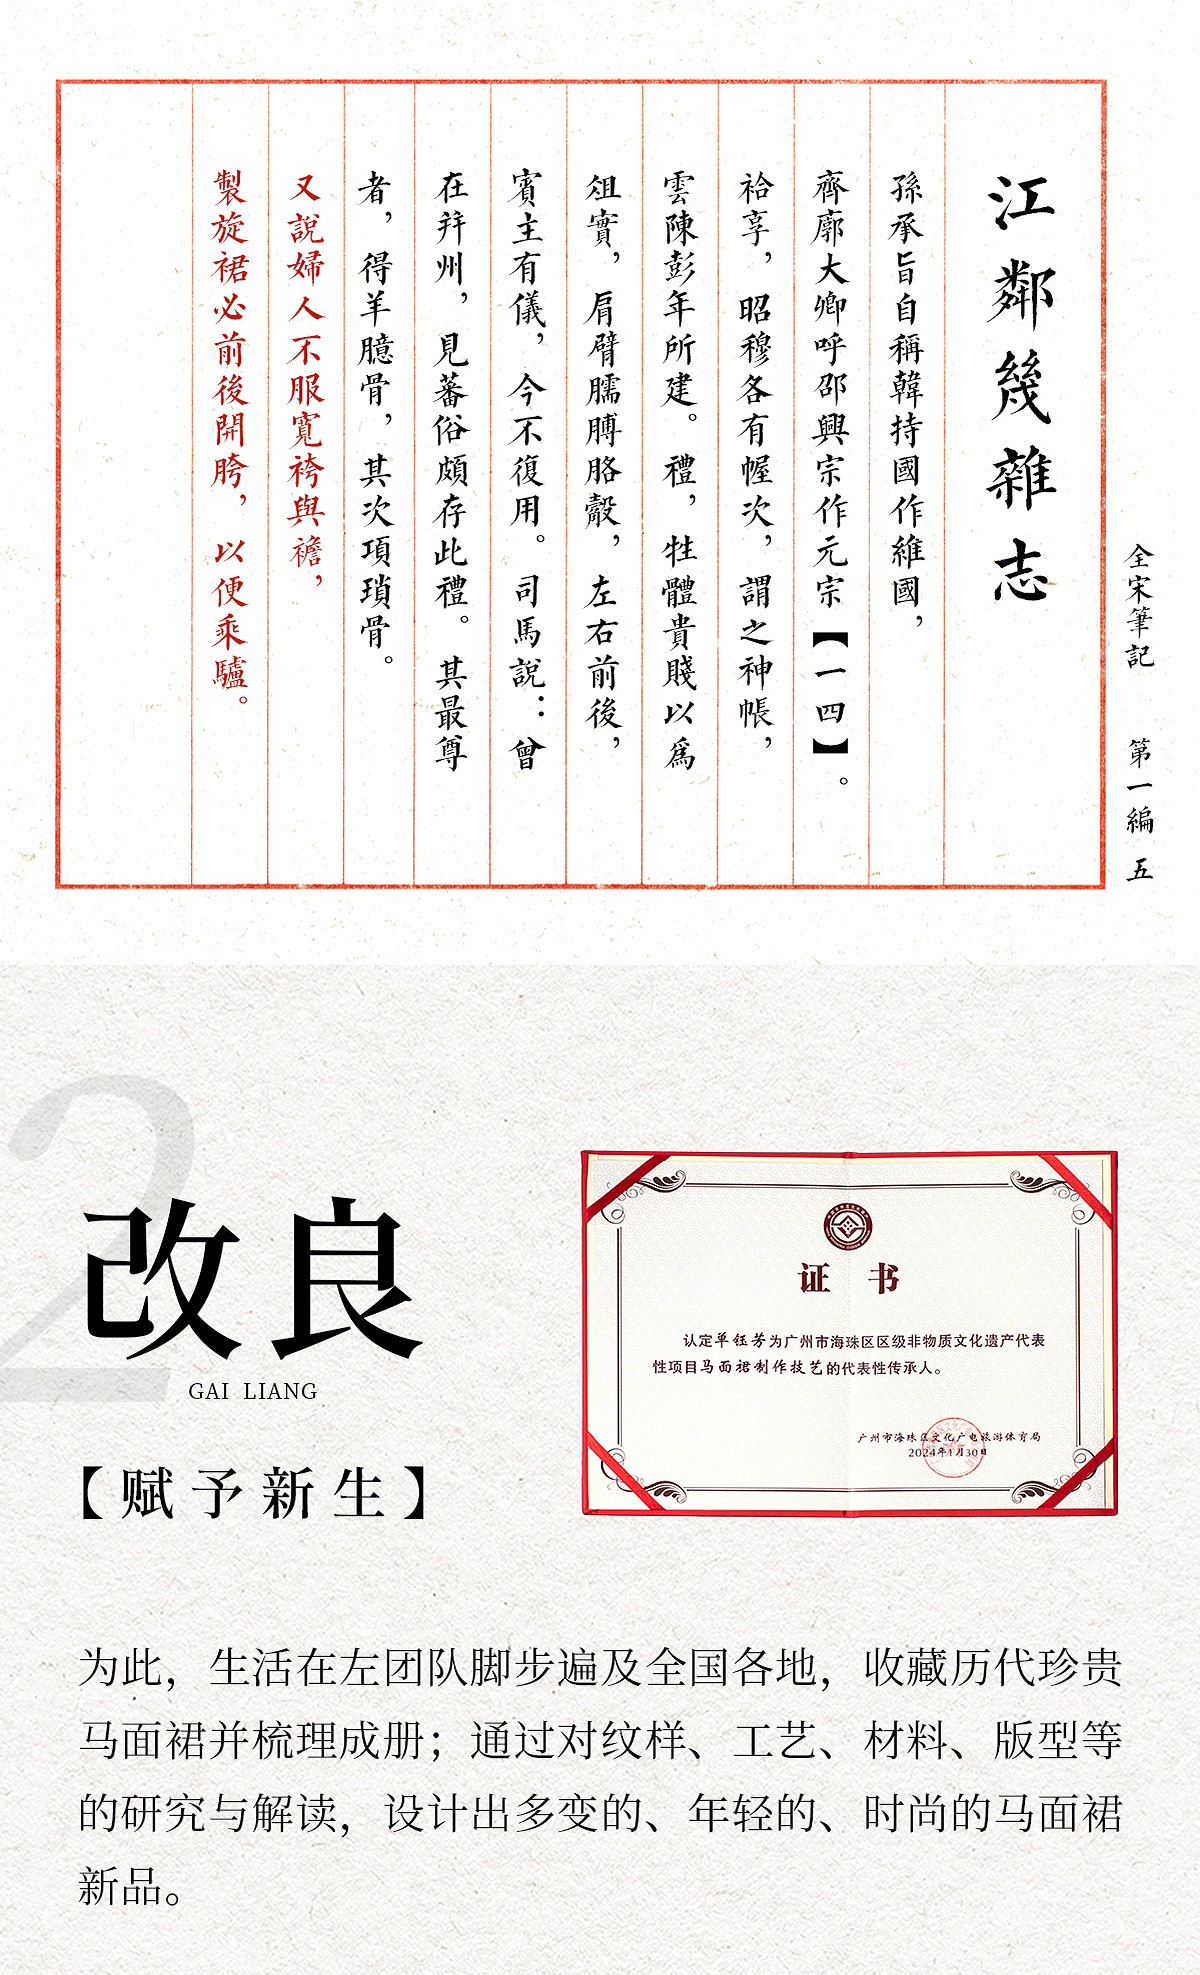 全宋筆記 第一編 五
江鄰幾雜志
孫承旨自稱韓持國作維國，
齊廓大卿呼邵興宗作元宗【一四】。
祫享，昭穆各有幄次，謂之神帳，
雲陳彭年所建。禮，牲體貴賤以爲
俎實，肩臂臑膊胳觳，左右前後，
賓主有儀，今不復用。司馬說：曾
在拜州，見蕃俗頗存此禮。其最尊
者，得羊臆骨，其次項瑣骨。
又說婦人不服寬袴與襜，
製旋裙必前後開胯，以便乘驢。
2
改良
GAI LIANG
【赋予新生】
证书
认定单钰芳为广州市海珠区区级非物质文化遗产代表
性项目马面裙制作技艺的代表性传承人。
广州市海珠区文化广电旅游体育局
2024年1月30日
为此，生活在左团队脚步遍及全国各地，收藏历代珍贵
马面裙并梳理成册；通过对纹样、工艺、材料、版型等
的研究与解读，设计出多变的、年轻的、时尚的马面裙
新品。